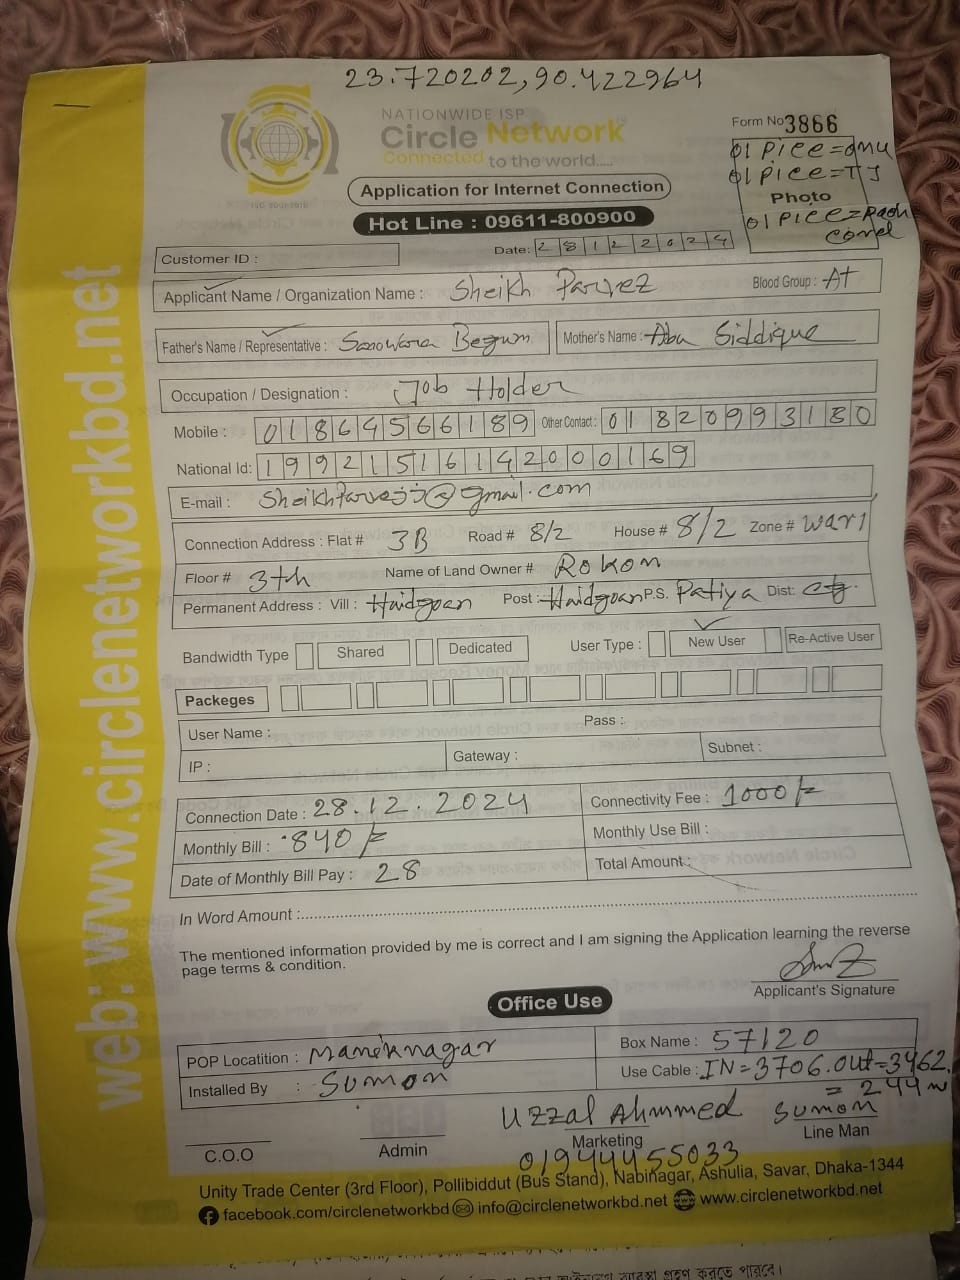 23.720202,90.422964
NATIONWIDE ISP
Circle Network
Connected to the world.....
ISO 9001:2015
Form No 3866
01 Pice=onu
01 Pice=TJ
Photo
01 Pice=Pach
Cord
Application for Internet Connection
Hot Line : 09611-800900
Date: 28122024
Customer ID :
Applicant Name / Organization Name : Sheikh Parvez
Blood Group : A+
Father's Name / Representative : Sanowara Begum
Mother's Name : Abu Siddique
Occupation / Designation : Job Holder
Mobile : 01864566189 Other Contact : 01820993180
National Id: 19921516142000169
E-mail : @gmail.com
Connection Address : Flat # 3B Road # 8/2 House # 8/2 Zone # wari
Floor # 3th Name of Land Owner # Rokon
Permanent Address : Vill : Haidgoan Post : Haidgoan P.S. Patiya Dist: ctg.
Bandwidth Type Shared Dedicated User Type : New User Re-Active User
Packeges
User Name : Pass :
IP : Gateway : Subnet :
Connection Date : 28.12.2024 Connectivity Fee : 1000/-
Monthly Bill : 840/- Monthly Use Bill :
Date of Monthly Bill Pay : 28 Total Amount :
In Word Amount :
The mentioned information provided by me is correct and I am signing the Application learning the reverse
page terms & condition.
Applicant's Signature
Office Use
POP Locatition : Maniknagar Box Name : 57120
Installed By : Sumon Use Cable : IN=3706.out=3462.
= 244 m
Uzzal Ahmmed Sumon
C.O.O Admin Marketing Line Man
01944455033
Unity Trade Center (3rd Floor), Pollibiddut (Bus Stand), Nabinagar, Ashulia, Savar, Dhaka-1344
facebook.com/circlenetworkbd info@circlenetworkbd.net www.circlenetworkbd.net
web: www.circlenetworkbd.net